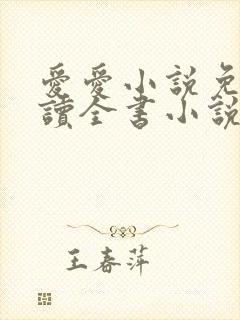 愛愛小說免
讀全書小說
王春萍